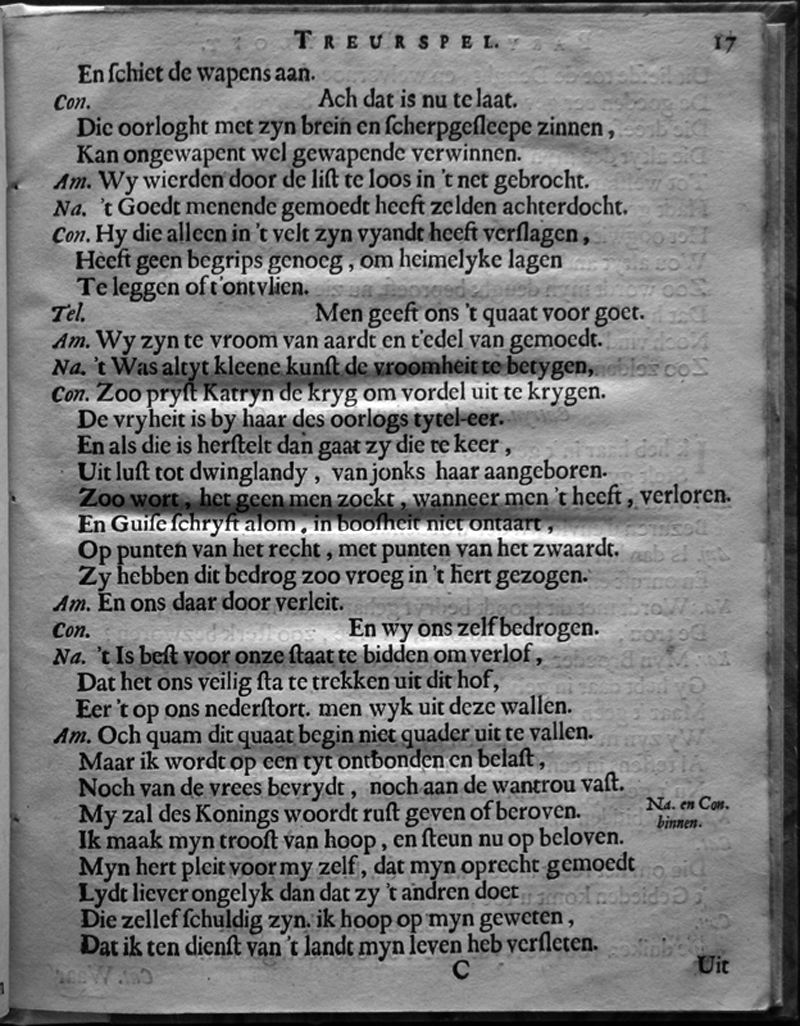 TREURSPEL. 17
En ſchiet de wapens aan.
Con. Ach dat is nu te laat.
Die oorloght met zyn brein en ſcherpgeſleepe zinnen,
Kan ongewapent wel gewapende verwinnen.
Am. Wy wierden door de liſt te loos in 't net gebrocht.
Na. 't Goedt menende gemoedt heeft zelden achterdocht.
Con. Hy die alleen in 't velt zyn vyandt heeft verſlagen,
Heeft geen begrips genoeg, om heimelyke lagen
Te leggen of t'ontvlien.
Tel. Men geeft ons 't quaat voor goet.
Am. Wy zyn te vroom van aardt en t'edel van gemoedt.
Na. 't Was altyt kleene kunſt de vroomheit te betygen,
Con. Zoo pryſt Katryn de kryg om vordel uit te krygen.
De vryheit is by haar des oorlogs tytel-eer.
En als die is herſtelt dan gaat zy die te keer,
Uit luſt tot dwinglandy, van jonks haar aangeboren.
Zoo wort, het geen men zoekt, wanneer men 't heeft, verloren.
En Guiſe ſchryft alom, in booſheit niet ontaart,
Op punten van het recht, met punten van het zwaardt.
Zy hebben dit bedrog zoo vroeg in 't hert gezogen.
Am. En ons daar door verleit.
Con. En wy ons zelf bedrogen.
Na. 't Is beſt voor onze ſtaat te bidden om verlof,
Dat het ons veilig ſta te trekken uit dit hof,
Eer 't op ons nederſtort. men wyk uit deze wallen.
Am. Och quam dit quaat begin niet quader uit te vallen.
Maar ik wordt op een tyt ontbonden en belaſt,
Noch van de vrees bevrydt, noch aan de wantrou vaſt.
My zal des Konings woordt ruſt geven of beroven. Na. en Con.
binnen.
Ik maak myn trooſt van hoop, en ſteun nu op beloven.
Myn hert pleit voor my zelf, dat myn oprecht gemoedt
Lydt liever ongelyk dan dat zy 't andren doet
Die zellef ſchuldig zyn. ik hoop op myn geweten,
Dat ik ten dienſt van 't landt myn leven heb verſleten.
C Uit